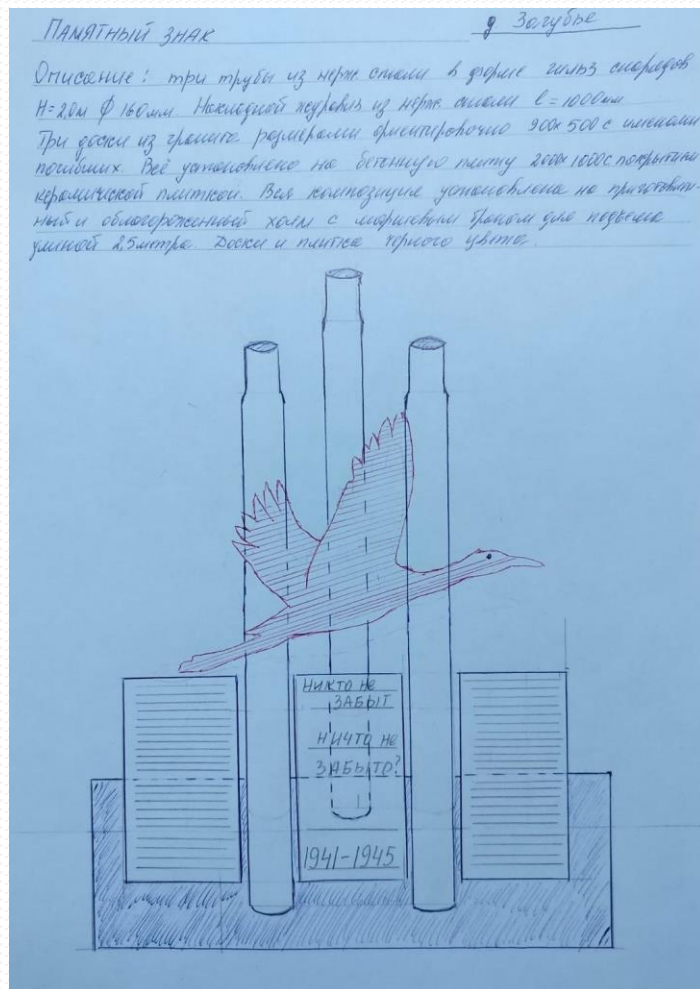 ПАМЯТНЫЙ ЗНАК
д Залубье
Описание: три трубы из нерж стали в форме гильз снарядов
H=2,0м ϕ 160мм. Накладной журавль из нерж стали l=1000мм
Три доски из гранита размерами ориентировочно 900х500 с именами
погибших. Всё установлено на бетонную плиту 2000х1000 с покрытием
керамической плиткой. Вся композиция установлена на приготовлен-
ный и облагороженный холм с маршевым для подъема
длиной 2,5метра. Доски и плитка черного цвета.
НИКТО НЕ
ЗАБЫТ
НИЧТО НЕ
ЗАБЫТО?
1941-1945